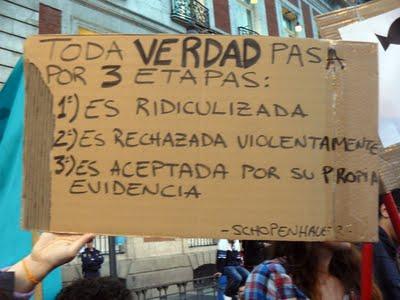 TODA VERDAD PASA
POR 3 ETAPAS:
1ª) ES RIDICULIZADA
2ª) ES RECHAZADA VIOLENTAMENTE
3ª) ES ACEPTADA POR SU PROPIA
EVIDENCIA
-SCHOPENHAUER-